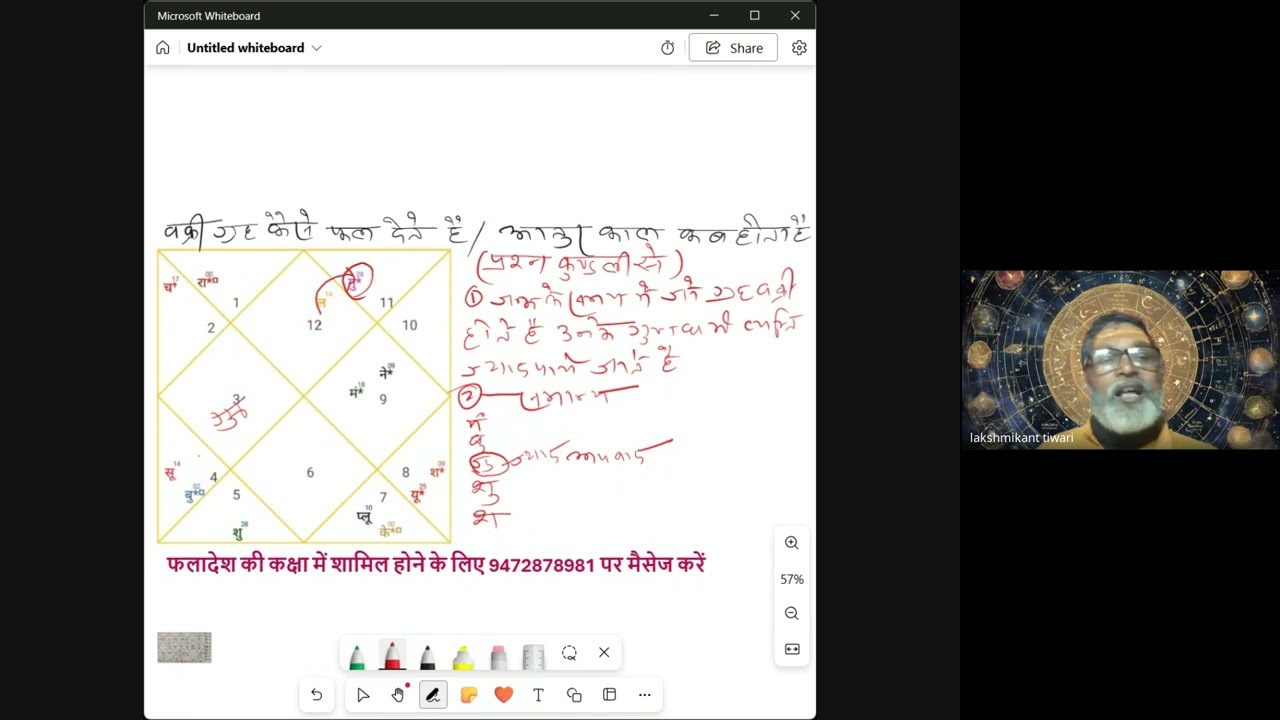 Microsoft Whiteboard
Untitled whiteboard
Share
वक्री ग्रह कैसे फल देते हैं / आयु काल कब होता है
(प्रश्न कुण्डली से)
① जन्म के समय में जो ग्रह वक्री
होते हैं उनके
ज्यादा पाये जाते हैं
②
मं
बु
गु
शु
श
चं* 17
रा* 00
1
2
12
28
ल 14
11
10
3
ने* 09
मं* 18
9
सू 14
बु* 02
4
5
शु 28
6
8
श* 09
7
यू* 25
प्लू 10
के* 00
फलादेश की कक्षा में शामिल होने के लिए 9472878981 पर मैसेज करें
57%
T
lakshmikant tiwari